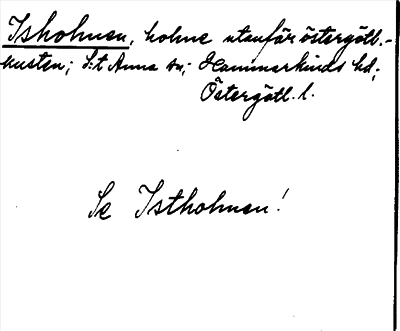 Isholmen, holme utanför östergötl.-
kusten; S:t Anna sn; Hammarkinds hd;
Östergötl. l.
Se Istholmen!